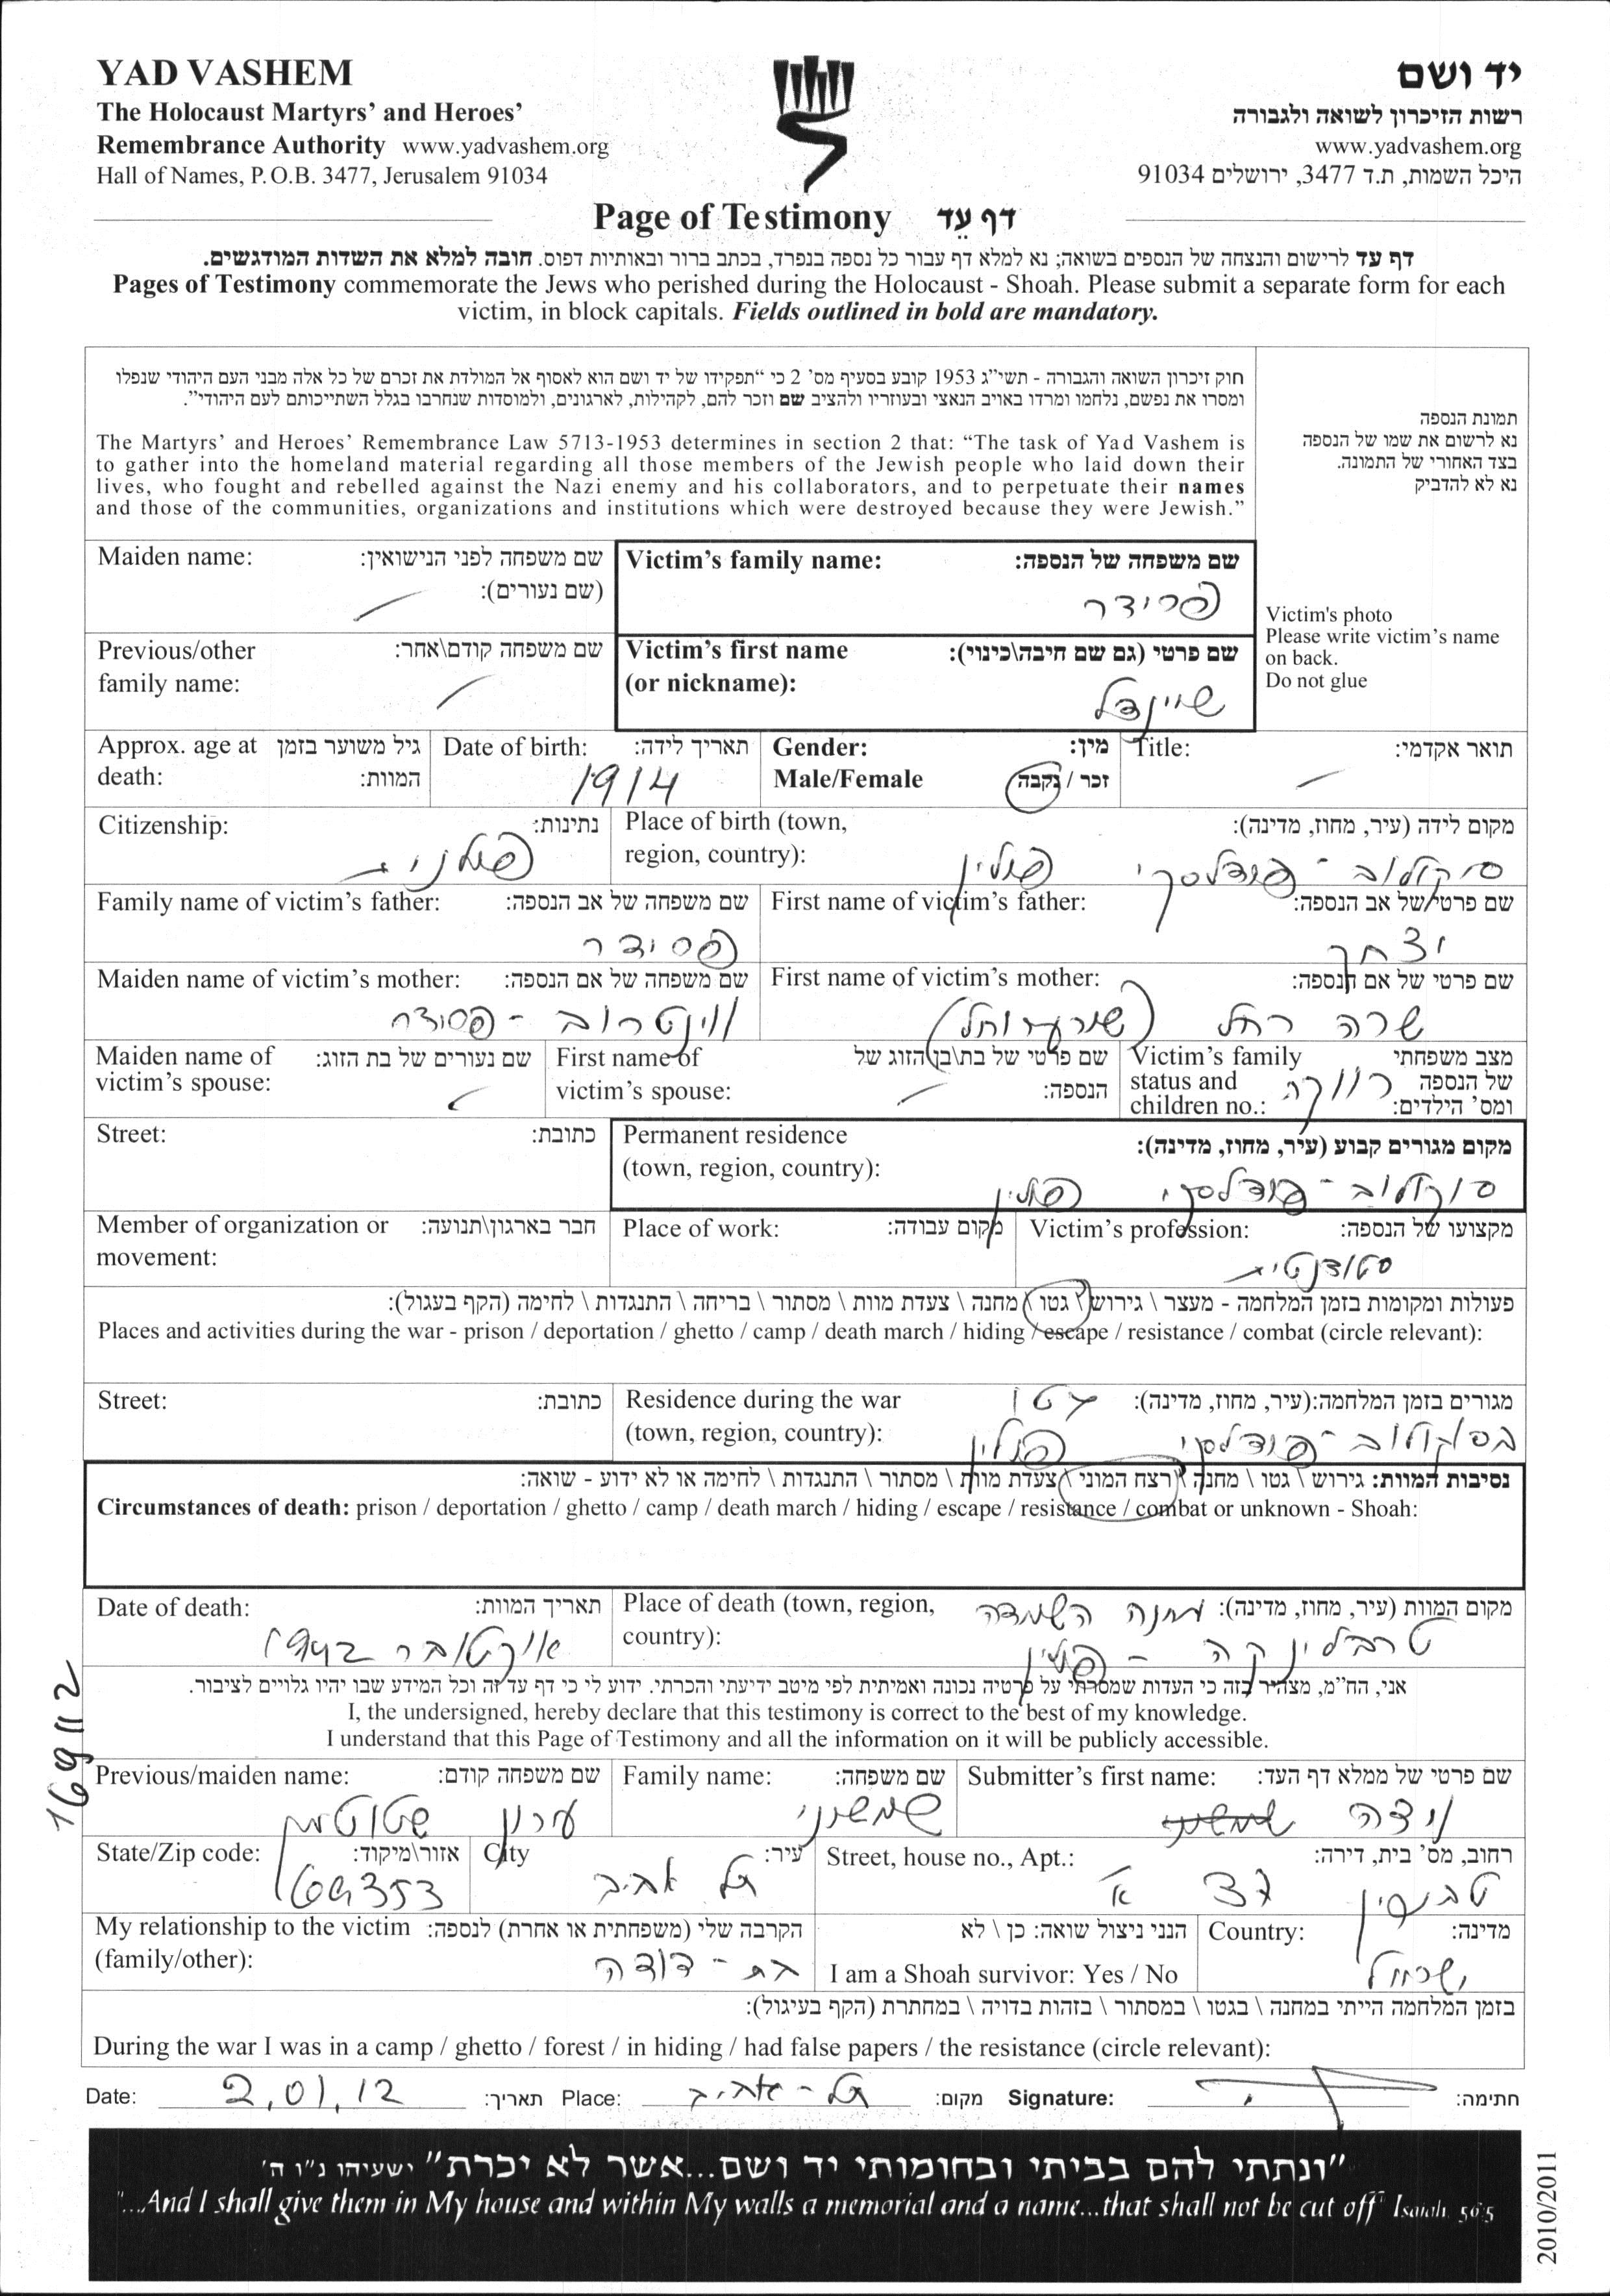 YAD VASHEM
The Holocaust Martyrs’ and Heroes’
Remembrance Authority www.yadvashem.org
Hall of Names, P.O.B. 3477, Jerusalem 91034
יד ושם
רשות הזיכרון לשואה ולגבורה
www.yadvashem.org
היכל השמות, ת.ד 3477, ירושלים 91034
Page of Testimony דף עֵד
דף עד לרישום והנצחה של הנספים בשואה; נא למלא דף עבור כל נספה בנפרד, בכתב ברור ובאותיות דפוס. חובה למלא את השדות המודגשים.
Pages of Testimony commemorate the Jews who perished during the Holocaust - Shoah. Please submit a separate form for each
victim, in block capitals. Fields outlined in bold are mandatory.
חוק זיכרון השואה והגבורה - תשי”ג 1953 קובע בסעיף מס’ 2 כי “תפקידו של יד ושם הוא לאסוף אל המולדת את זכרם של כל אלה מבני העם היהודי שנפלו
ומסרו את נפשם, נלחמו ומרדו באויב הנאצי ובעוזריו ולהציב שם וזכר להם, לקהילות, לארגונים, ולמוסדות שנחרבו בגלל השתייכותם לעם היהודי”.
The Martyrs’ and Heroes’ Remembrance Law 5713-1953 determines in section 2 that: “The task of Yad Vashem is
to gather into the homeland material regarding all those members of the Jewish people who laid down their
lives, who fought and rebelled against the Nazi enemy and his collaborators, and to perpetuate their names
and those of the communities, organizations and institutions which were destroyed because they were Jewish.”
תמונת הנספה
נא לרשום את שמו של הנספה
בצד האחורי של התמונה.
נא לא להדביק
Victim's photo
Please write victim’s name
on back.
Do not glue
Maiden name: שם משפחה לפני הנישואין:
(שם נעורים):
Victim’s family name: שם משפחה של הנספה:
פרידר
Previous/other שם משפחה קודם\אחר:
family name:
Victim’s first name שם פרטי (גם שם חיבה\כינוי):
(or nickname):
שיינדל
Approx. age at גיל משוער בזמן
death: המוות:
Date of birth: תאריך לידה:
1914
Gender: מין:
Male/Female זכר / נקבה
Title: תואר אקדמי:
Citizenship: נתינות:
פולניה
Place of birth (town, מקום לידה (עיר, מחוז, מדינה):
region, country):
סוקולוב - פודלסקי פולין
Family name of victim’s father: שם משפחה של אב הנספה:
First name of victim’s father: שם פרטי של אב הנספה:
יצחק
Maiden name of victim’s mother: שם משפחה של אם הנספה:
First name of victim’s mother: שם פרטי של אם הנספה:
שרה רחל
Maiden name of שם נעורים של בת הזוג:
victim’s spouse:
First name of שם פרטי של בת\בן הזוג של
victim’s spouse: הנספה:
Victim’s family מצב משפחתי
status and של הנספה
children no.: ומס’ הילדים:
רווקה
Street: כתובת:
Permanent residence מקום מגורים קבוע (עיר, מחוז, מדינה):
(town, region, country):
סוקולוב - פודלסקי פולין
Member of organization or חבר בארגון\תנועה:
movement:
Place of work: מקום עבודה:
Victim’s profession: מקצועו של הנספה:
סטודנטית
פעולות ומקומות בזמן המלחמה - מעצר \ גירוש \ גטו \ מחנה \ צעדת מוות \ מסתור \ בריחה \ התנגדות \ לחימה (הקף בעגול):
Places and activities during the war - prison / deportation / ghetto / camp / death march / hiding / escape / resistance / combat (circle relevant):
Street: כתובת:
Residence during the war מגורים בזמן המלחמה:(עיר, מחוז, מדינה):
גטו
(town, region, country):
בסוקולוב - פודלסקי פולין
נסיבות המוות: גירוש \ גטו \ מחנה \ רצח המוני \ צעדת מוות \ מסתור \ התנגדות \ לחימה או לא ידוע - שואה:
Circumstances of death: prison / deportation / ghetto / camp / death march / hiding / escape / resistance / combat or unknown - Shoah:
Date of death: תאריך המוות:
אוקטובר 1942
Place of death (town, region, מקום המוות (עיר, מחוז, מדינה):
country):
מחנה השמדה
טרבלינקה - פולין
אני, הח”מ, מצהיר בזה כי העדות שמסרתי על פרטיה נכונה ואמיתית לפי מיטב ידיעתי והכרתי. ידוע לי כי דף עד זה וכל המידע שבו יהיו גלויים לציבור.
I, the undersigned, hereby declare that this testimony is correct to the best of my knowledge.
I understand that this Page of Testimony and all the information on it will be publicly accessible.
169112
Previous/maiden name: שם משפחה קודם:
Family name: שם משפחה:
שמשוני
Submitter’s first name: שם פרטי של ממלא דף העד:
ניצה
State/Zip code: אזור\מיקוד:
City עיר:
תל אביב
Street, house no., Apt.: רחוב, מס’ בית, דירה:
טבנקין
My relationship to the victim הקרבה שלי (משפחתית או אחרת) לנספה:
(family/other):
בת - דודה
הנני ניצול שואה: כן \ לא
I am a Shoah survivor: Yes / No
Country: מדינה:
ישראל
בזמן המלחמה הייתי במחנה \ בגטו \ במסתור \ בזהות בדויה \ במחתרת (הקף בעיגול):
During the war I was in a camp / ghetto / forest / in hiding / had false papers / the resistance (circle relevant):
Date: 2.01.12 תאריך: Place: תל - אביב מקום: Signature: חתימה:
”ונתתי להם בביתי ובחומותי יד ושם...אשר לא יכרת” ישעיהו נ”ו ה’
“...And I shall give them in My house and within My walls a memorial and a name...that shall not be cut off” Isaiah 56:5
2010/2011